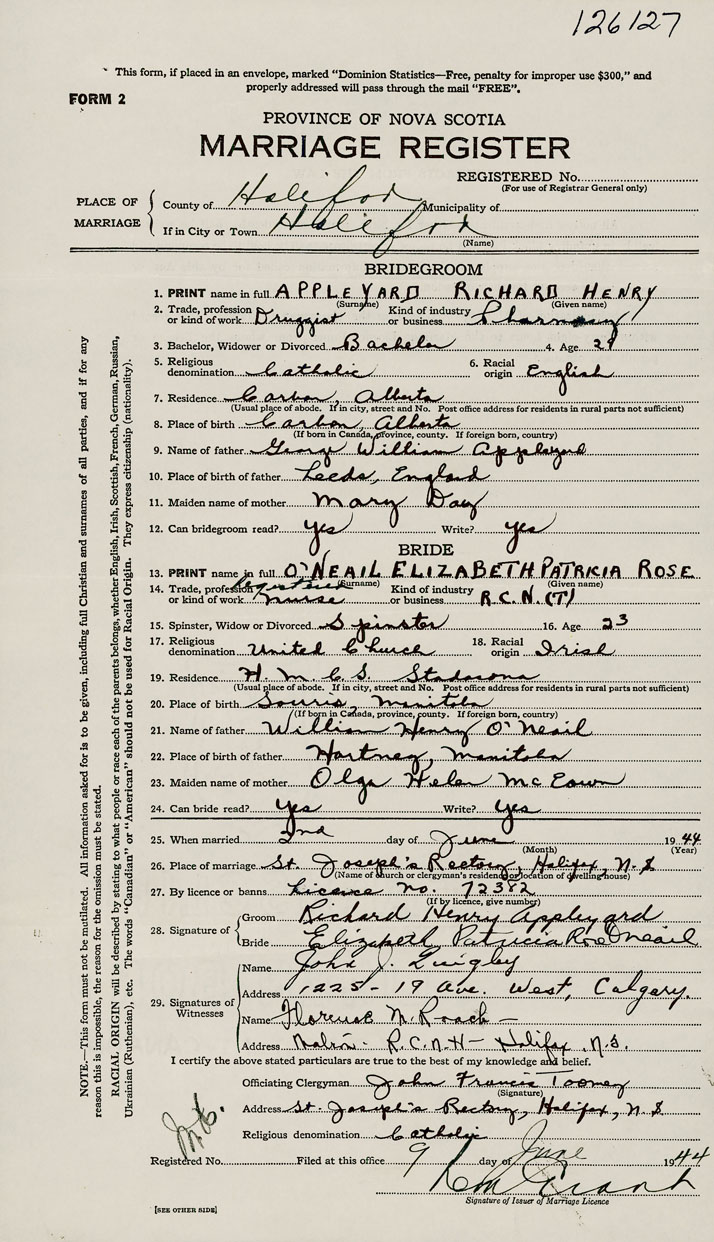 126127
This form, if placed in an envelope, marked "Dominion Statistics—Free, penalty for improper use $300," and
properly addressed will pass through the mail "FREE".
FORM 2
PROVINCE OF NOVA SCOTIA
MARRIAGE REGISTER
REGISTERED No.
(For use of Registrar General only)
PLACE OF MARRIAGE
County of Halifax Municipality of
If in City or Town Halifax
(Name)
BRIDEGROOM
1. PRINT name in full APPLEYARD RICHARD HENRY
(Surname) (Given name)
2. Trade, profession or kind of work Druggist Kind of industry or business Pharmacy
3. Bachelor, Widower or Divorced Bachelor 4. Age 29
5. Religious denomination Catholic 6. Racial origin English
7. Residence Carbon, Alberta
(Usual place of abode. If in city, street and No. Post office address for residents in rural parts not sufficient)
8. Place of birth Carbon, Alberta
(If born in Canada, province, county. If foreign born, country)
9. Name of father George William Appleyard
10. Place of birth of father Leeds, England
11. Maiden name of mother Mary Day
12. Can bridegroom read? Yes Write? Yes
BRIDE
13. PRINT name in full O'NEAIL ELIZABETH PATRICIA ROSE
(Surname) (Given name)
14. Trade, profession or kind of work Registered Nurse Kind of industry or business R.C.N.(T)
15. Spinster, Widow or Divorced Spinster 16. Age 23
17. Religious denomination United Church 18. Racial origin Irish
19. Residence H.M.C.S. Stadacona
(Usual place of abode. If in city, street and No. Post office address for residents in rural parts not sufficient)
20. Place of birth Souris, Manitoba
(If born in Canada, province, county. If foreign born, country)
21. Name of father William Henry O'Neail
22. Place of birth of father Hartney, Manitoba
23. Maiden name of mother Olga Helen McEown
24. Can bride read? Yes Write? Yes
25. When married 2nd day of June 1944
(Month) (Year)
26. Place of marriage St. Joseph's Rectory, Halifax, N.S
(Name of church or clergyman's residence or location of dwelling house)
27. By licence or banns Licence no. 72382
(If by licence, give number)
28. Signature of
Groom Richard Henry Appleyard
Bride Elizabeth Patricia Rose O'Neail
29. Signatures of Witnesses
Name John J. Quigley
Address 1225 - 19 Ave. West, Calgary.
Name Florence M. Roach
Address R.C.N.H - Halifax, N.S.
I certify the above stated particulars are true to the best of my knowledge and belief.
Officiating Clergyman John Francis Tooney
(Signature)
Address St. Joseph's Rectory, Halifax, N.S
Religious denomination Catholic
Registered No. Filed at this office 9 day of June 1944
Signature of Issuer of Marriage Licence
[SEE OTHER SIDE]
NOTE.—This form must not be mutilated. All information asked for is to be given, including full Christian and surnames of all parties, and if for any
reason this is impossible, the reason for the omission must be stated.
RACIAL ORIGIN will be described by stating to what people or race each of the parents belongs, whether English, Irish, Scottish, French, German, Russian,
Ukrainian (Ruthenian), etc. The words "Canadian" or "American" should not be used for Racial Origin. They express citizenship (nationality).